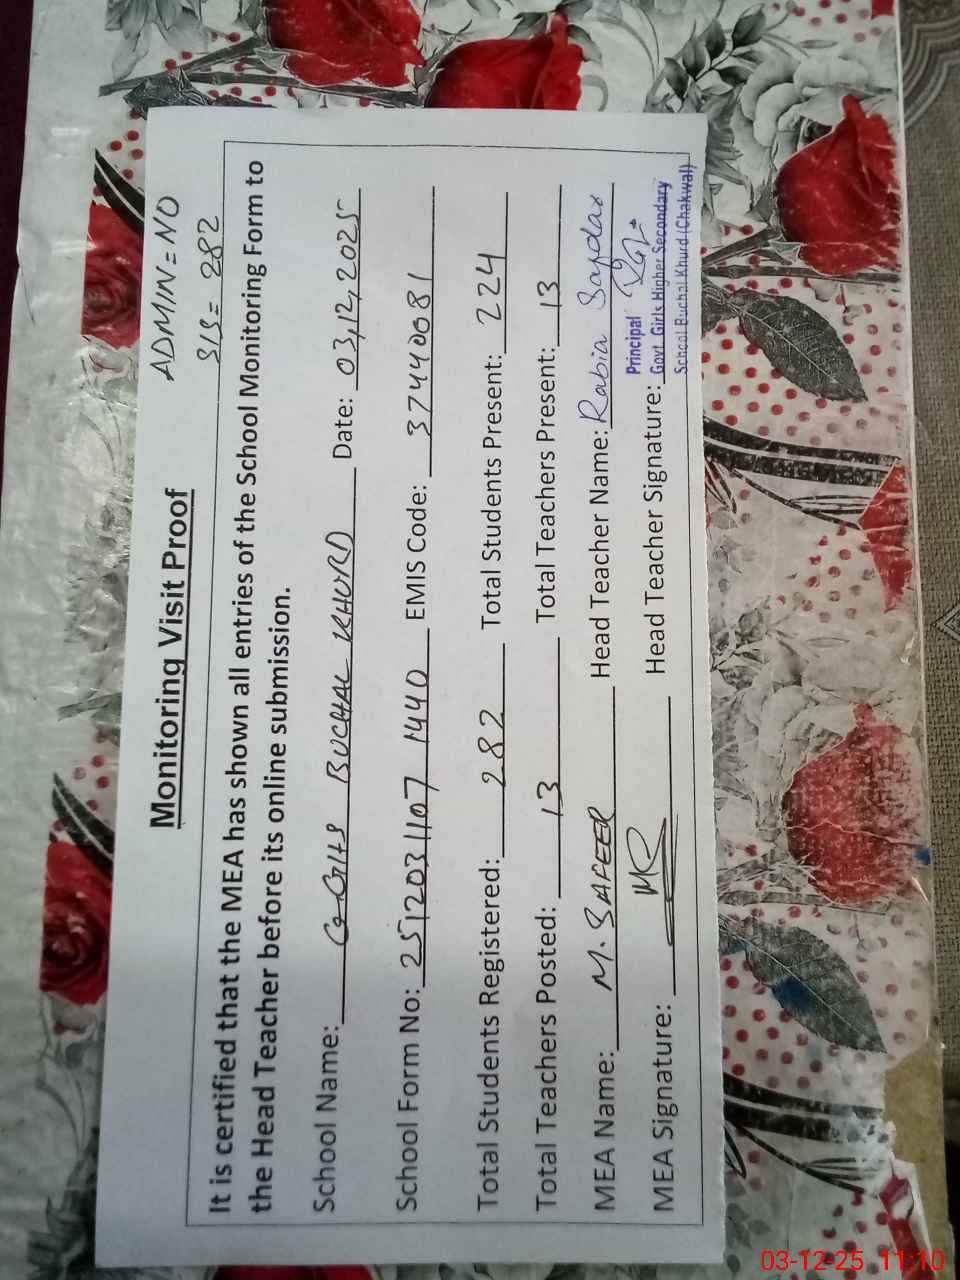 ADMIN = NO
SIS = 282
Monitoring Visit Proof
It is certified that the MEA has shown all entries of the School Monitoring Form to
the Head Teacher before its online submission.
School Name: GGHS BUCHAL KHURD Date: 03,12,2025
School Form No: 2512031107 1440 EMIS Code: 37440081
Total Students Registered: 282 Total Students Present: 224
Total Teachers Posted: 13 Total Teachers Present: 13
MEA Name: M. SAFEER Head Teacher Name: Rabia Safdar
MEA Signature: Head Teacher Signature:
Principal
Govt. Girls Higher Secondary
School Buchal Khurd (Chakwal)
03-12-25 11:10